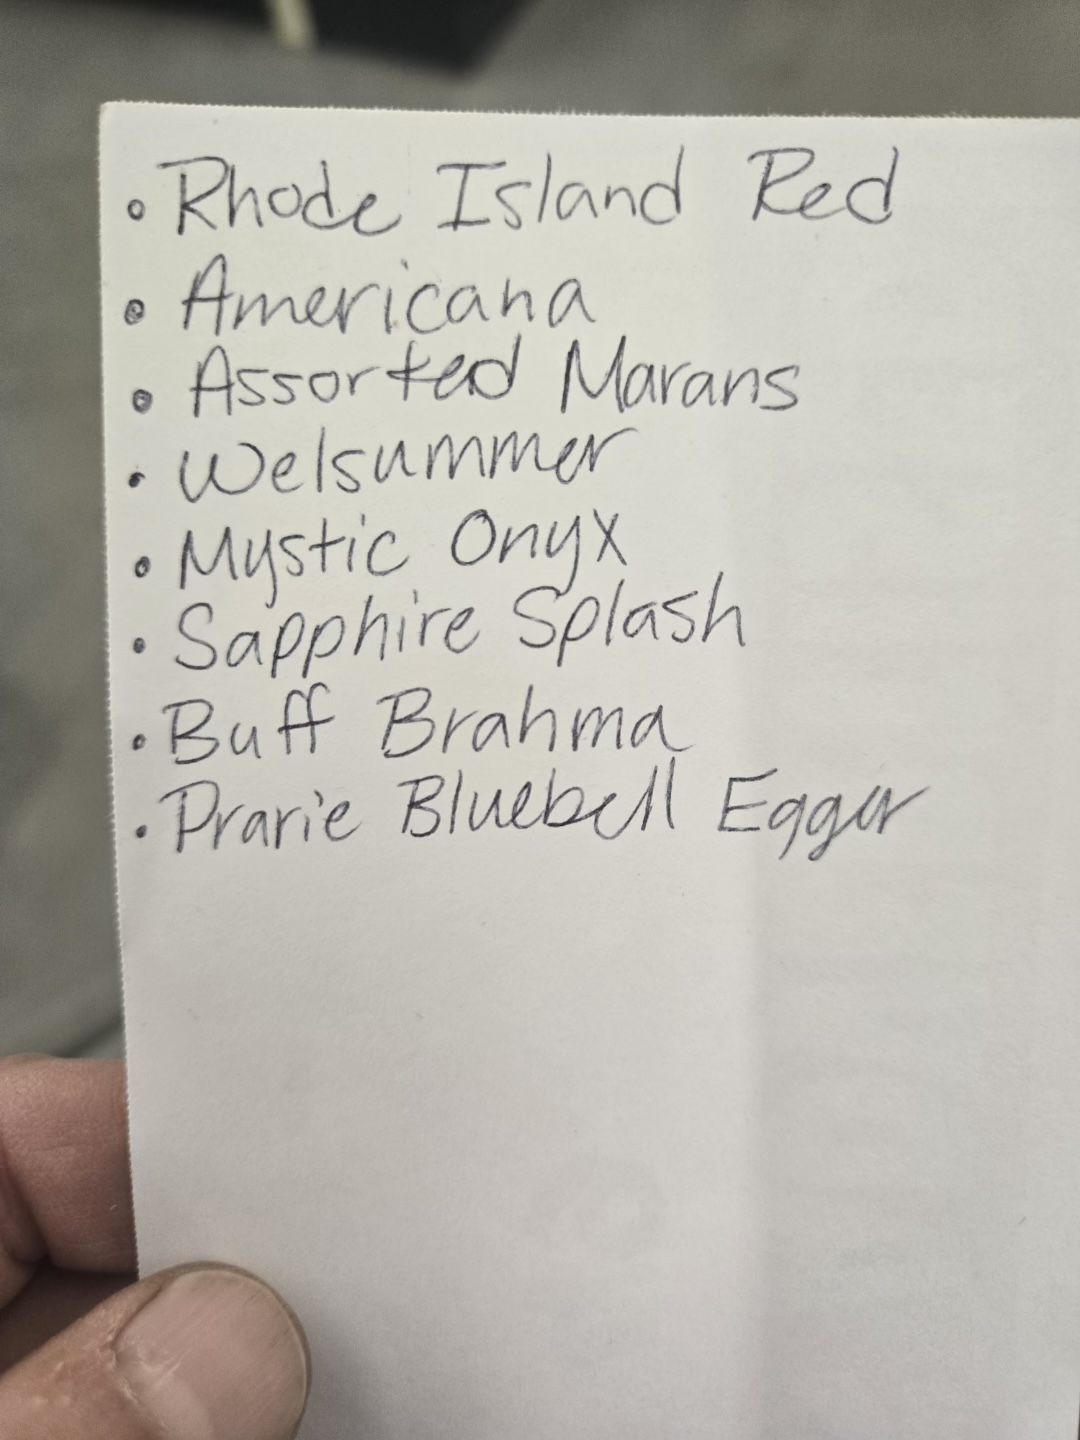 • Rhode Island Red
• Americana
• Assorted Marans
• Welsummer
• Mystic Onyx
• Sapphire Splash
• Buff Brahma
• Prarie Bluebell Egger